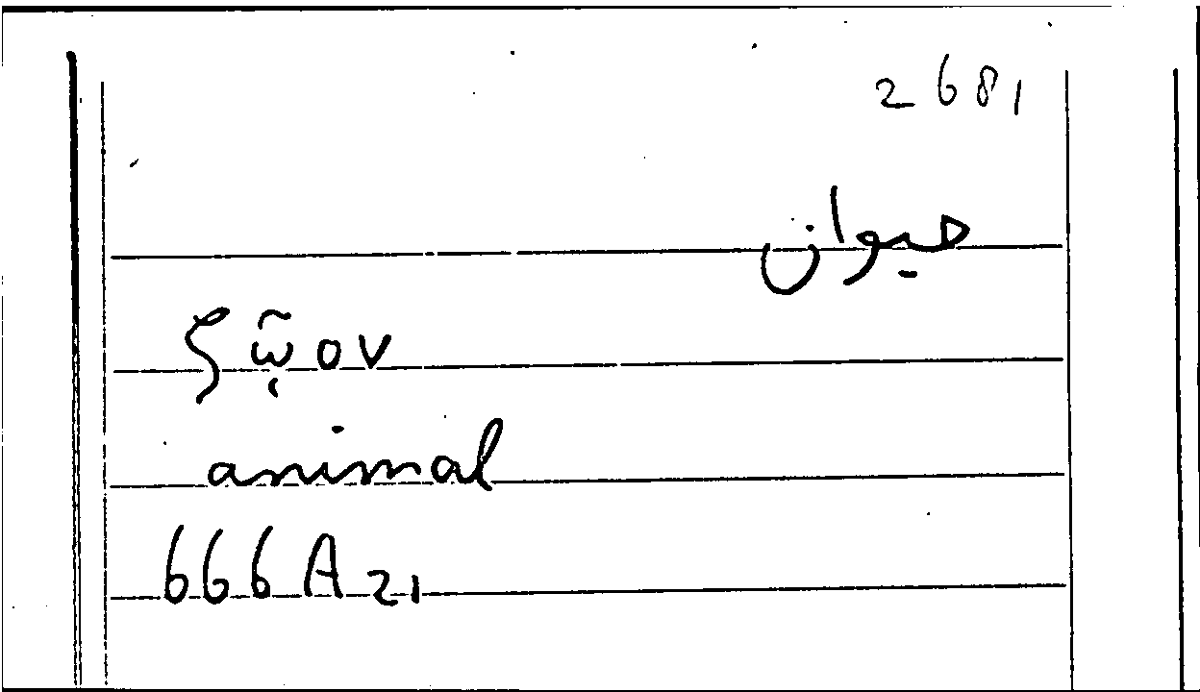 2681
حيوان
ζῷον
animal
666A21